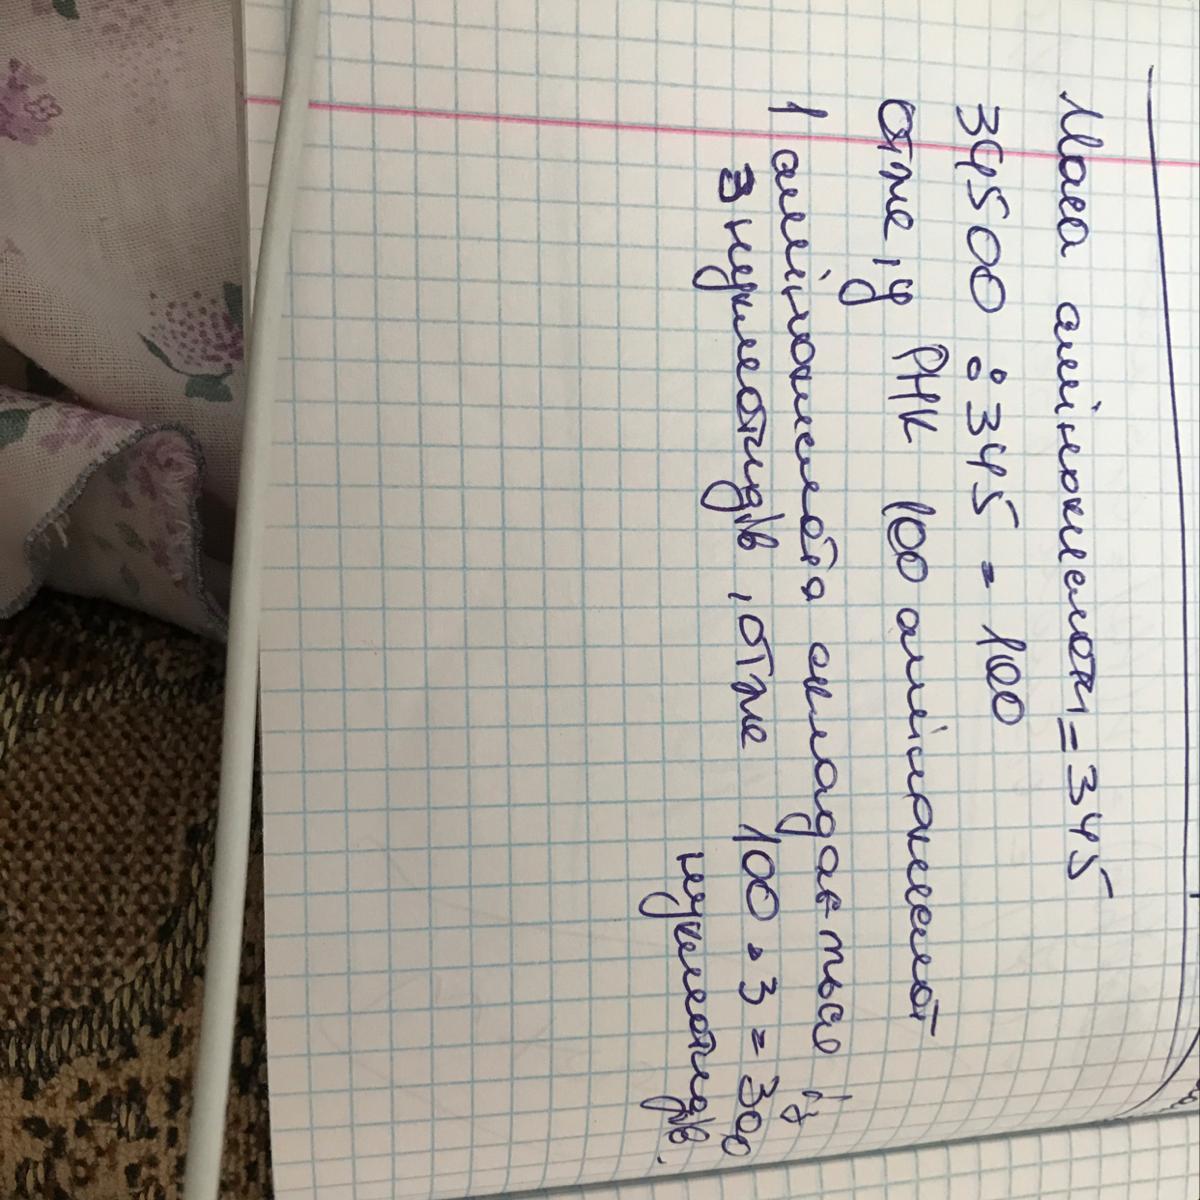 Маса амінокислоти = 345
34500 : 345 = 100
отже, у РНК 100 амінокислот
1 амінокислота складається із
3 нуклеотидів, отже 100 · 3 = 300
нуклеотидів.